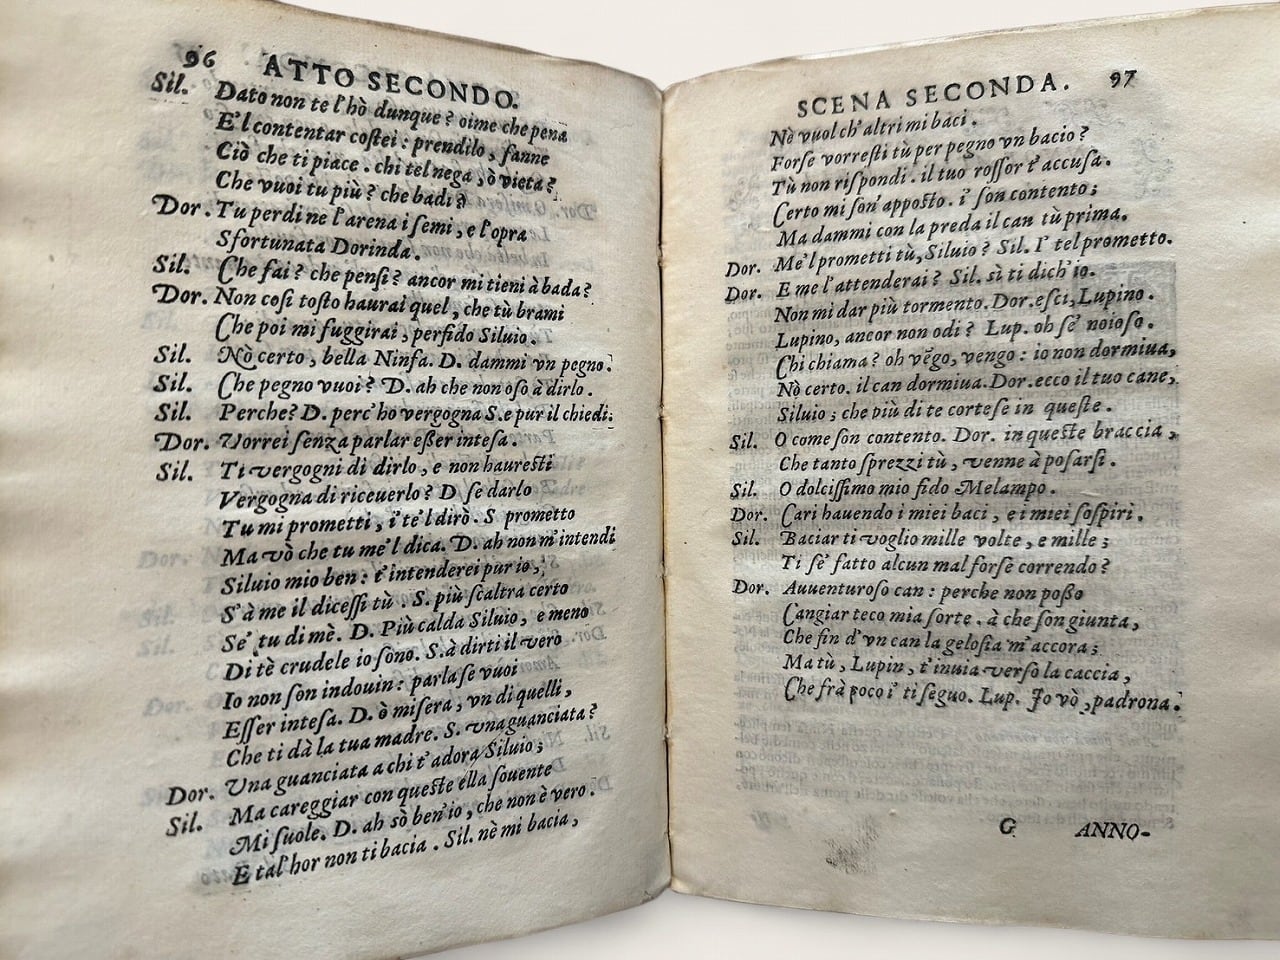 96 ATTO SECONDO.
Sil. Dato non te l'hò dunque? oime che pena
E'l contentar costei: prendilo, fanne
Ciò che ti piace. chi tel nega, ò vieta?
Che vuoi tu più? che badi?
Dor. Tu perdi ne l'arena i semi, e l'opra
Sfortunata Dorinda.
Sil. Che fai? che pensi? ancor mi tieni à bada?
Dor. Non cosi tosto haurai quel, che tù brami
Che poi mi fuggirai, perfido Siluio.
Sil. Nò certo, bella Ninfa. D. dammi vn pegno.
Sil. Che pegno vuoi? D. ah che non oso à dirlo.
Sil. Perche? D. perc'hò vergogna S. e pur il chiedi:
Dor. Vorrei senza parlar eßer intesa.
Sil. Ti vergogni di dirlo, e non hauresti
Vergogna di riceuerlo? D se darlo
Tu mi prometti, i' te'l dirò. S prometto
Ma vò che tu me'l dica. D. ah non m'intendi
Siluio mio ben: t'intenderei pur io,
S'à me il dicessi tù. S. più scaltra certo
Se' tu di mè. D. Più calda Siluio, e meno
Di tè crudele io sono. S. à dirti il vero
Io non son indouin: parla se vuoi
Esser intesa. D. ò misera, vn di quelli,
Che ti dà la tua madre. S. vna guanciata?
Dor. Vna guanciata a chi t'adora Siluio;
Sil. Ma careggiar con queste ella souente
Mi suole. D. ah sò ben'io, che non è vero.
E tal'hor non ti bacia. Sil. nè mi bacia,
SCENA SECONDA. 97
Nè vuol ch'altri mi baci.
Forse vorresti tù per pegno vn bacio?
Tù non rispondi. il tuo rossor t'accusa.
Certo mi son'apposto. i' son contento;
Ma dammi con la preda il can tù prima.
Dor. Me'l prometti tù, Siluio? Sil. I' tel prometto.
Dor. E me l'attenderai? Sil. sì ti dich'io.
Non mi dar più tormento. Dor. esci, Lupino.
Lupino, ancor non odi? Lup. oh se' noioso.
Chi chiama? oh vẽgo, vengo: io non dormiua,
Nò certo. il can dormiua. Dor. ecco il tuo cane,
Siluio; che più di te cortese in queste.
Sil. O come son contento. Dor. in queste braccia,
Che tanto sprezzi tù, venne à posarsi.
Sil. O dolcissimo mio fido Melampo.
Dor. Cari hauendo i miei baci, e i miei sospiri.
Sil. Baciar ti voglio mille volte, e mille;
Ti se' fatto alcun mal forse correndo?
Dor. Auuenturoso can: perche non poßo
Cangiar teco mia sorte. à che son giunta,
Che fin d'vn can la gelosia m'accora;
Ma tù, Lupin, t'inuia verso la caccia,
Che frà poco i' ti seguo. Lup. Io vò, padrona.
G ANNO-